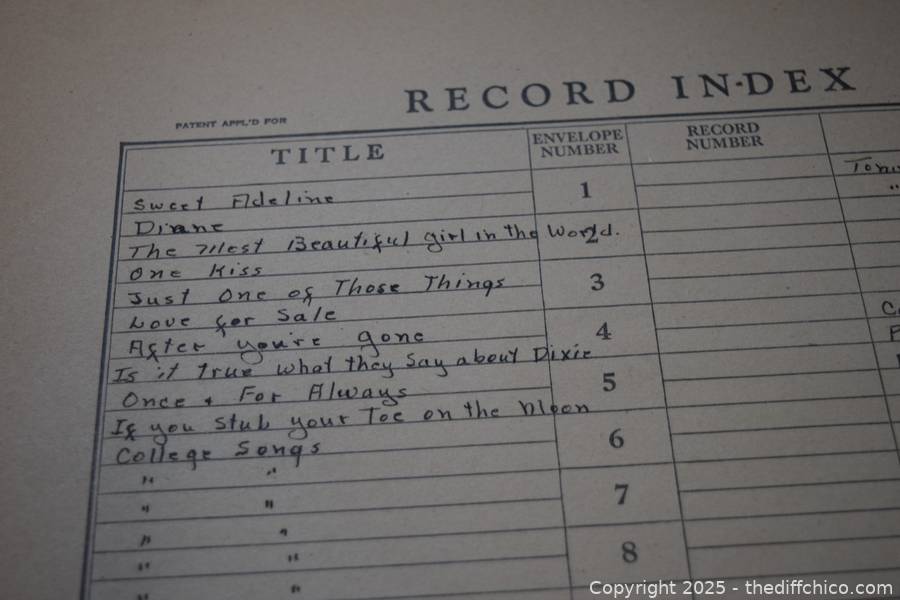 RECORD IN·DEX
PATENT APPL'D FOR
TITLE
ENVELOPE NUMBER
RECORD NUMBER
Sweet Adeline
1
Diane
The Most Beautiful girl in the World.
2
One Kiss
Just One of Those Things
3
Love for Sale
After you're gone
4
Is it true what they say about Dixie
Once & For Always
5
If you Stub your Toe on the Moon
College Songs
6
" "
" "
7
" "
" "
8
" "
Copyright 2025 - thediffchico.com